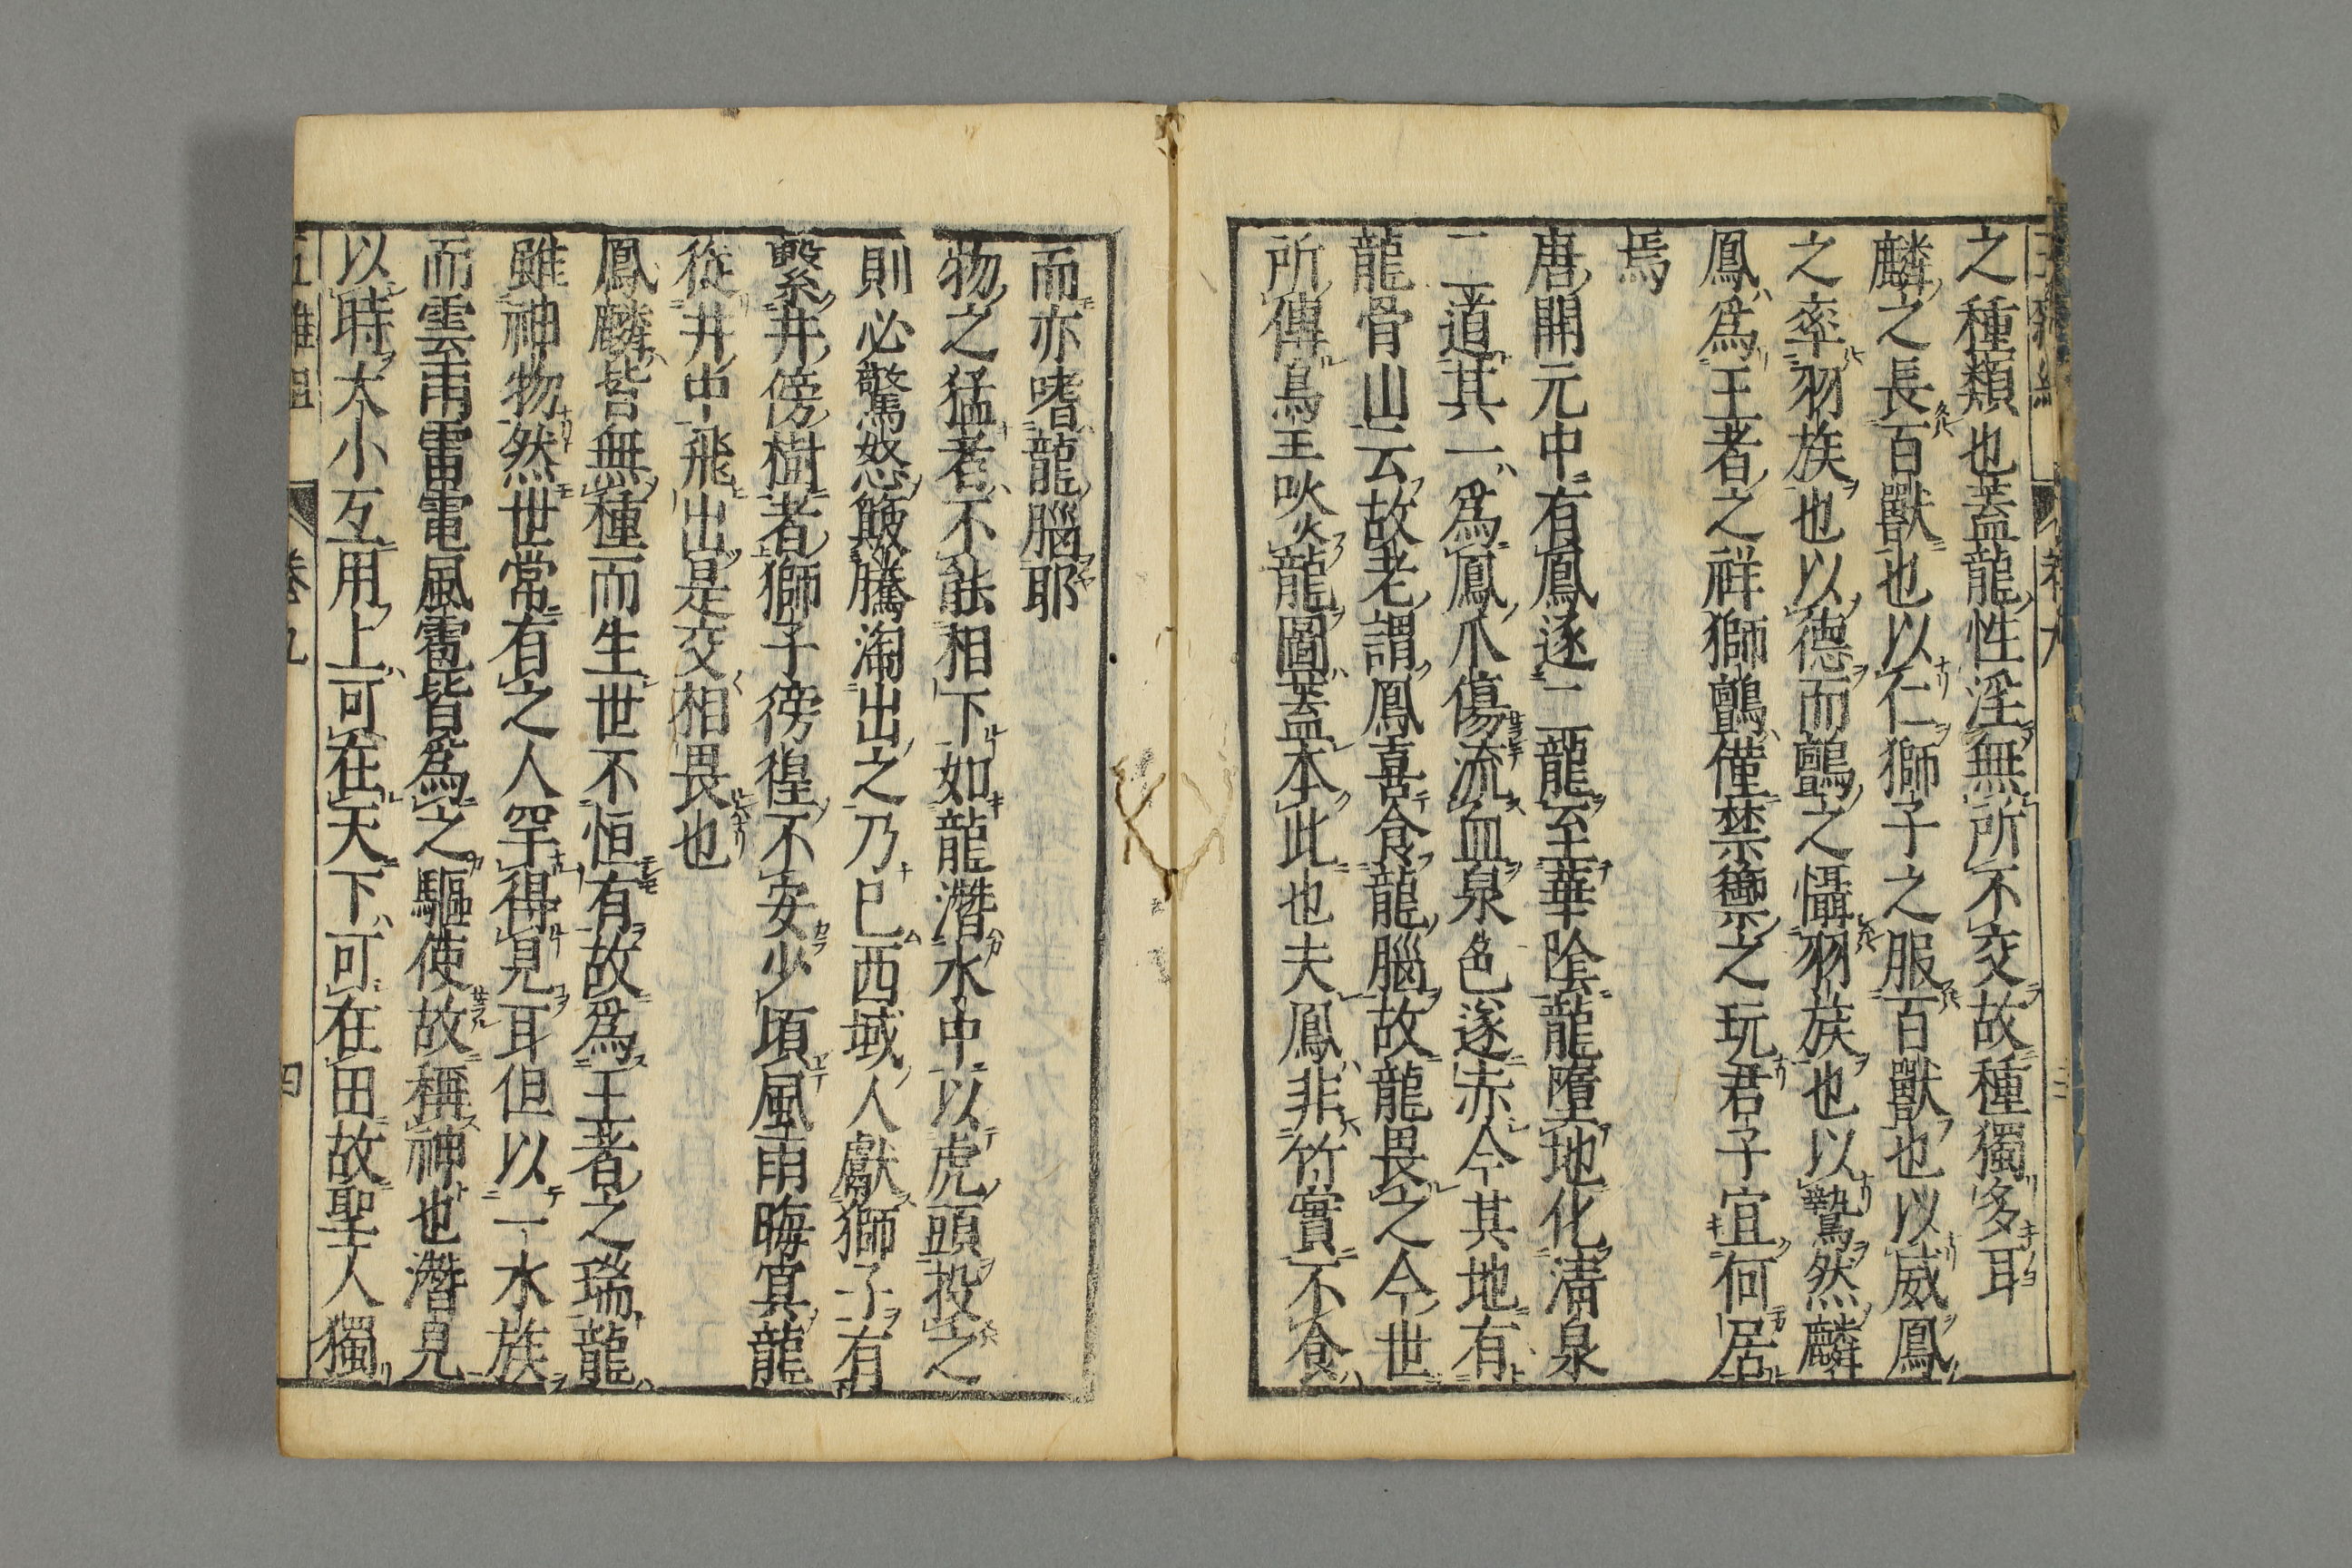 之種類也蓋龍性淫無所不交故種獨多耳
麟之長百獸也以仁獅子之服百獸也以威鳳
之率羽族也以德而鸇之懾羽族也以鷙然麟
鳳爲王者之祥獅鸇僅禁籞之玩君子宜何居
焉
唐開元中有鳳逐二龍至華陰龍墮地化清泉
二道其一爲鳳爪傷流血泉色遂赤今其地有
龍骨山云故老謂鳳喜食龍腦故龍畏之今世
所傳鳥王啖龍圖蓋本此也夫鳳非竹實不食
而亦嗜龍腦耶
物之猛者不能相下如龍潛水中以虎頭投之
則必驚怒簸騰淘出之乃巳西域人獻獅子有
繫井傍樹者獅子徬徨不安少頃風雨晦冥龍
從井中飛出是交相畏也
鳳麟皆無種而生世不恒有故爲王者之瑞龍
雖神物然世常有之人罕得見耳但以一水族
而雲雨雷電風雹皆爲之驅使故稱神也潛見
以時大小互用上可在天下可在田故聖人獨
五雜組
卷九
四